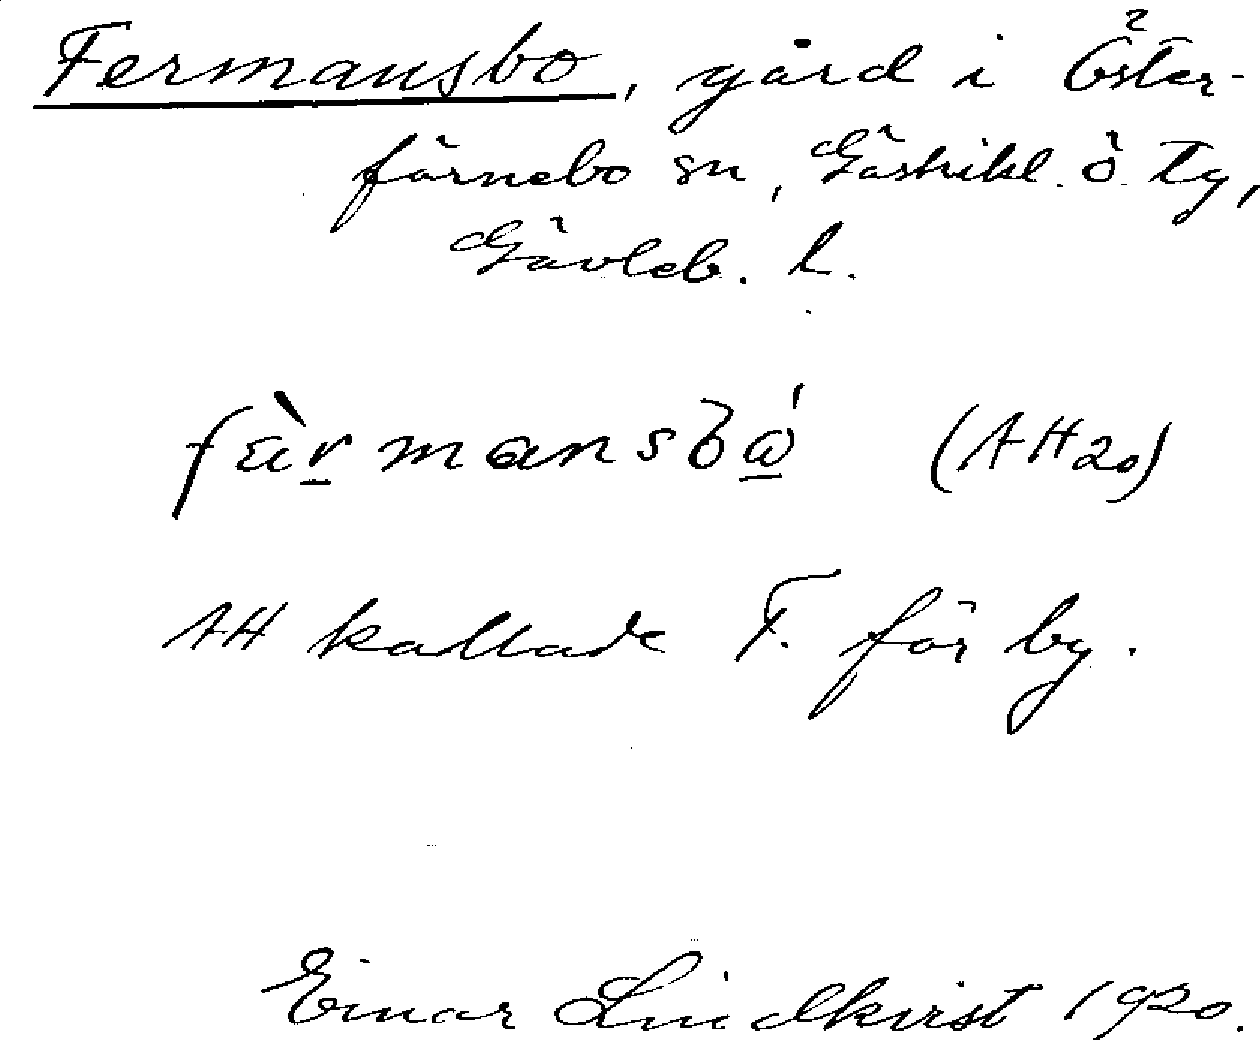 Fermansbo, gård i Öster-
färnebo sn, Gästrikl. ö. tg,
Gävleb. l.
fær̲mansbώ̲ (AH20)
AH kallade F. för by.
Einar Lindkvist 1920.